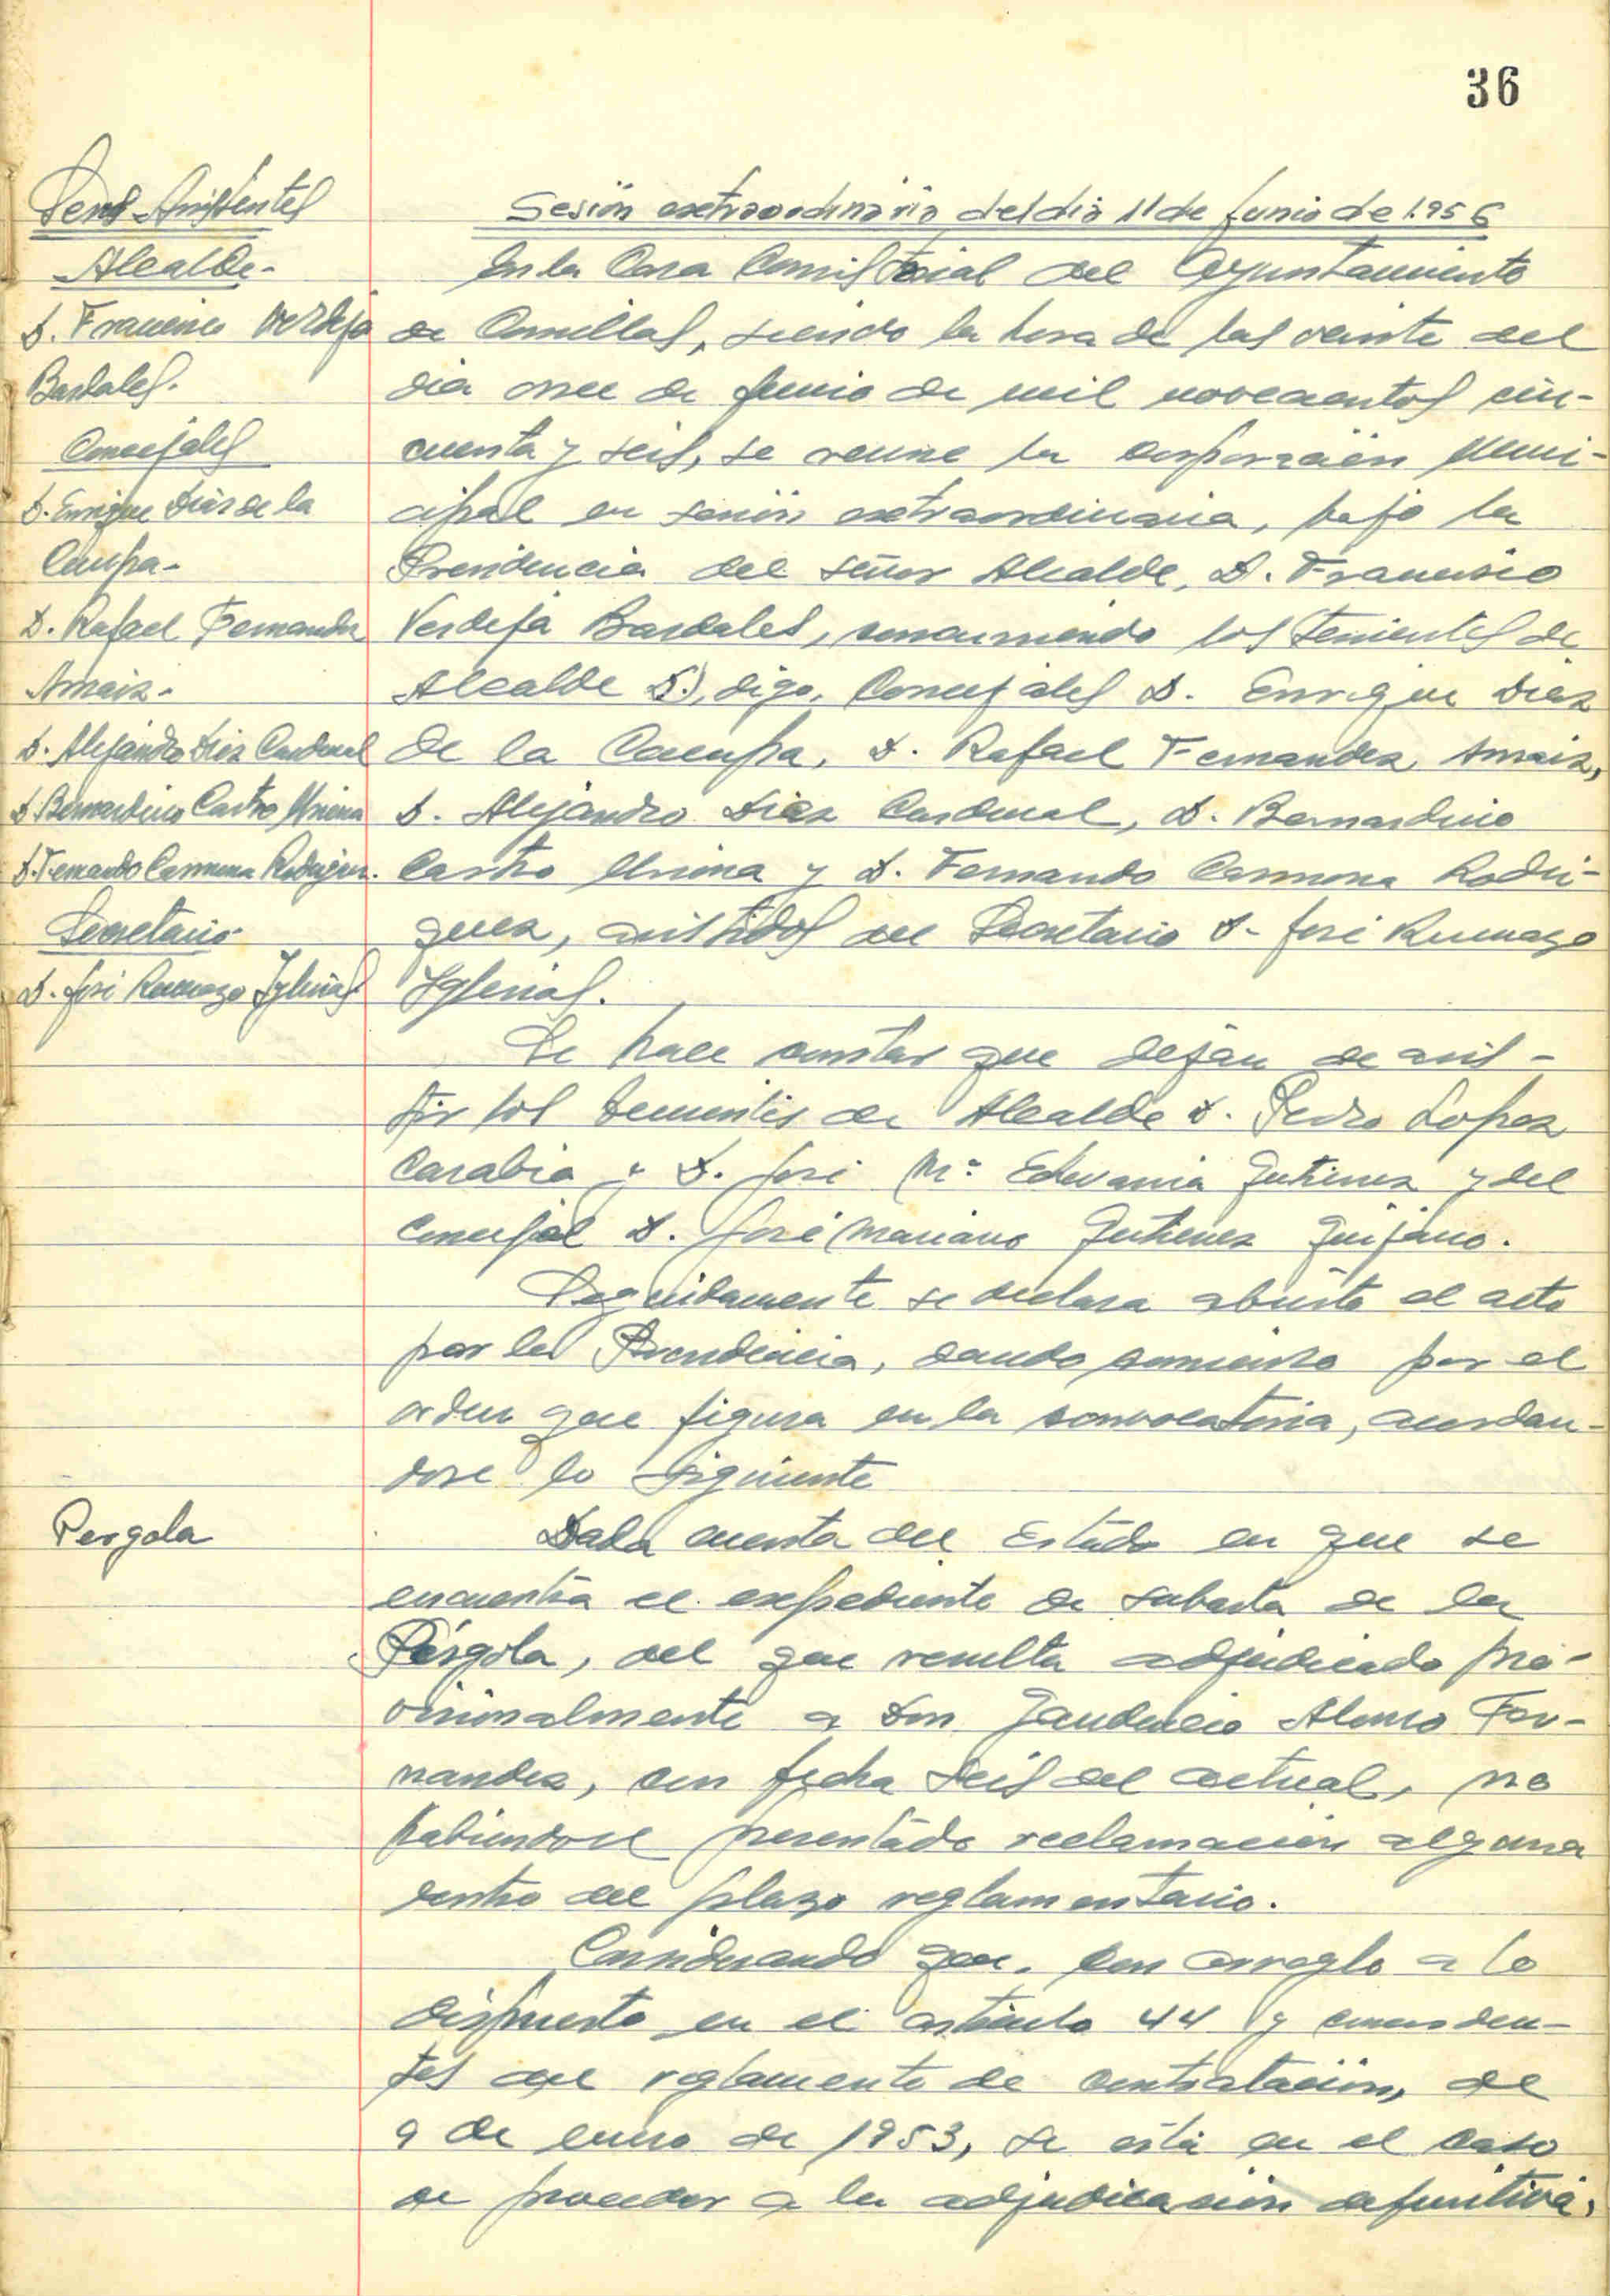 36
Sres Asistentes
Alcalde-
D. Francisco Verdeja
Bardales.
Concejales
D. Enrique Díaz de la
Campa-
D. Rafael Fernandez
Amaiz-
D. Alejandro Díaz Cardenal
D. Bernardino Castro
D. Fernando Carmona Rodriguez.
Secretario
D. José Rumazo Iglesias
Sesión extraordinaria del día 11 de Junio de 1.956
En la Casa Consistorial del Ayuntamiento
de Comillas, siendo la hora de las veinte del
dia once de Junio de mil novecientos cin-
cuenta y seis, se reune la corporación Muni-
cipal en sesión extraordinaria, bajo la
Presidencia del señor Alcalde, D. Francisco
Verdeja Bardales, concurriendo los tenientes de
Alcalde D.), digo, Concejales D. Enrique Diaz
de la Campa, D. Rafael Fernandez Amaiz,
D. Alejandro Diaz Cardenal, D. Bernardino
Castro y D. Fernando Carmona Rodri-
guez, asistidos del Secretario D. José Rumazo
Iglesias.
Se hace constar que dejan de asis-
tir los tenientes de Alcalde D. Pedro Lopez
Carabia y D. José Mª Echevarria Gutierrez y del
Concejal D. José Mariano Gutierrez Guijano.
Seguidamente se declara abierto el acto
por la Presidencia, dando comienzo por el
orden que figura en la convocatoria, acordan-
dose lo siguiente
Pergola
Dada cuenta del Estado en que se
encuentra el expediente de subasta de la
Pérgola, del que resulta adjudicado pro-
visionalmente a Don Gaudencio Alonso Fer-
nandez, con fecha seis del actual, no
habiendose presentado reclamación alguna
dentro del plazo reglamentario.
Considerando que, con arreglo a lo
dispuesto en el articulo 44 y concordan-
tes del reglamento de contratación, de
9 de enero de 1953, se está en el caso
de proceder a la adjudicación definitiva,